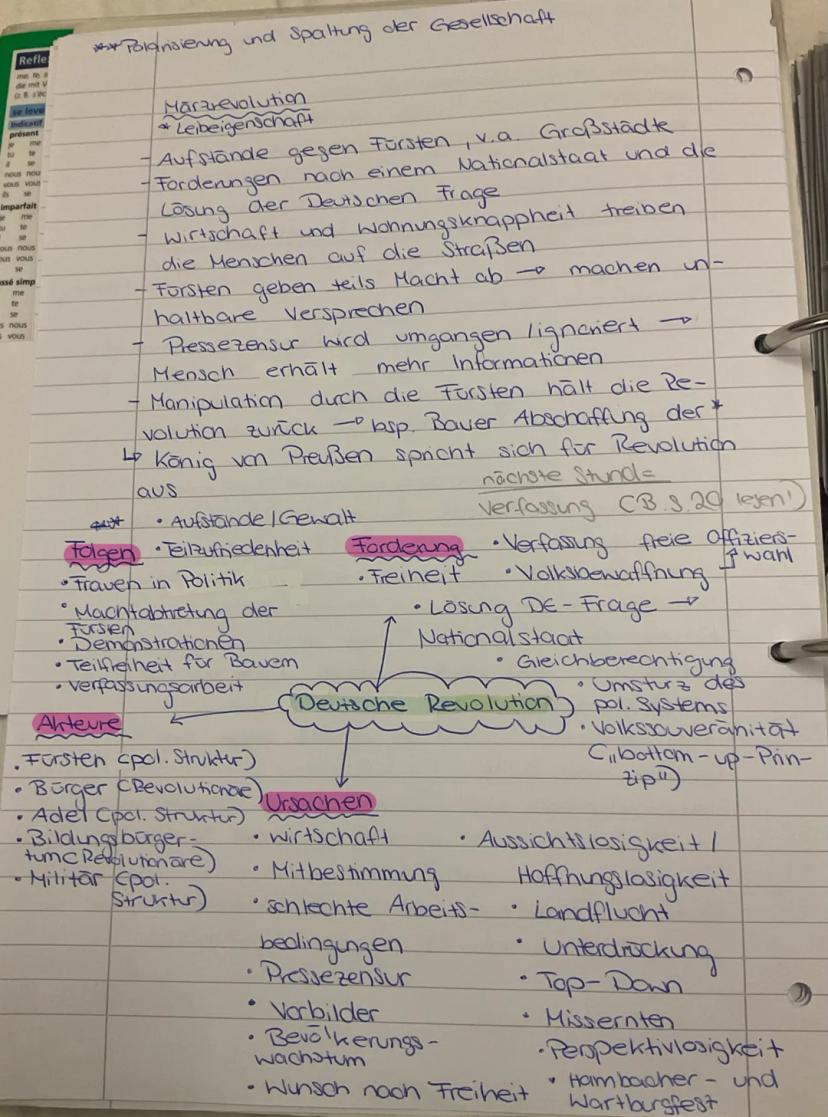 ** Polarisierung und Spaltung der Gesellschaft
Märzrevolution
* Leibeigenschaft
- Aufstände gegen Fürsten, v.a. Großstädte
- Forderungen nach einem Nationalstaat und die
Lösung der Deutschen Frage
- Wirtschaft und Wohnungsknappheit treiben
die Menschen auf die Straßen
- Fürsten geben teils Macht ab → machen un-
haltbare Versprechen
- Pressezensur wird umgangen / ignoriert →
Mensch erhält mehr Informationen
- Manipulation durch die Fürsten hält die Re-
volution zurück → bsp. Bauer Abschaffung der *
↳ König von Preußen spricht sich für Revolution
aus
nächste Stunde
Verfassung (B. S. 20 lesen!)
• Aufstände / Gewalt
Folgen • Teilzufriedenheit
• Frauen in Politik
• Machtabtretung der
Fürsten
• Demonstrationen
• Teilfreiheit für Bauern
• Verfassungsarbeit
Forderung • Verfassung freie Offiziers-
wahl
• Freiheit • Volksbewaffnung
• Lösung DE-Frage →
Nationalstaat
• Gleichberechtigung
• Umsturz des
pol. Systems
• Volkssouveränität
("bottom-up-Prin-
zip")
Deutsche Revolution
Akteure
• Fürsten (pol. Struktur)
• Bürger (Revolutionäe)
• Adel (pol. Struktur)
• Bildungsbürger-
tum (Revolutionäre)
• Militär (pol.
Struktur)
Ursachen
• Wirtschaft
• Mitbestimmung
• schlechte Arbeits-
bedingungen
• Pressezensur
• Vorbilder
• Bevölkerungs-
wachstum
• Wunsch nach Freiheit
• Aussichtslosigkeit /
Hoffnungslosigkeit
• Landflucht
• Unterdrückung
• Top-Down
• Missernten
• Perspektivlosigkeit
• Hambacher- und
Wartburgfest
Refle
se leve
indicatif
présent
je me
tu te
il se
nous nou
vous vous
ils se
imparfait
je me
tu te
se
ous nous
ous vous
se
ssé simp
me
te
se
s nous
s vous